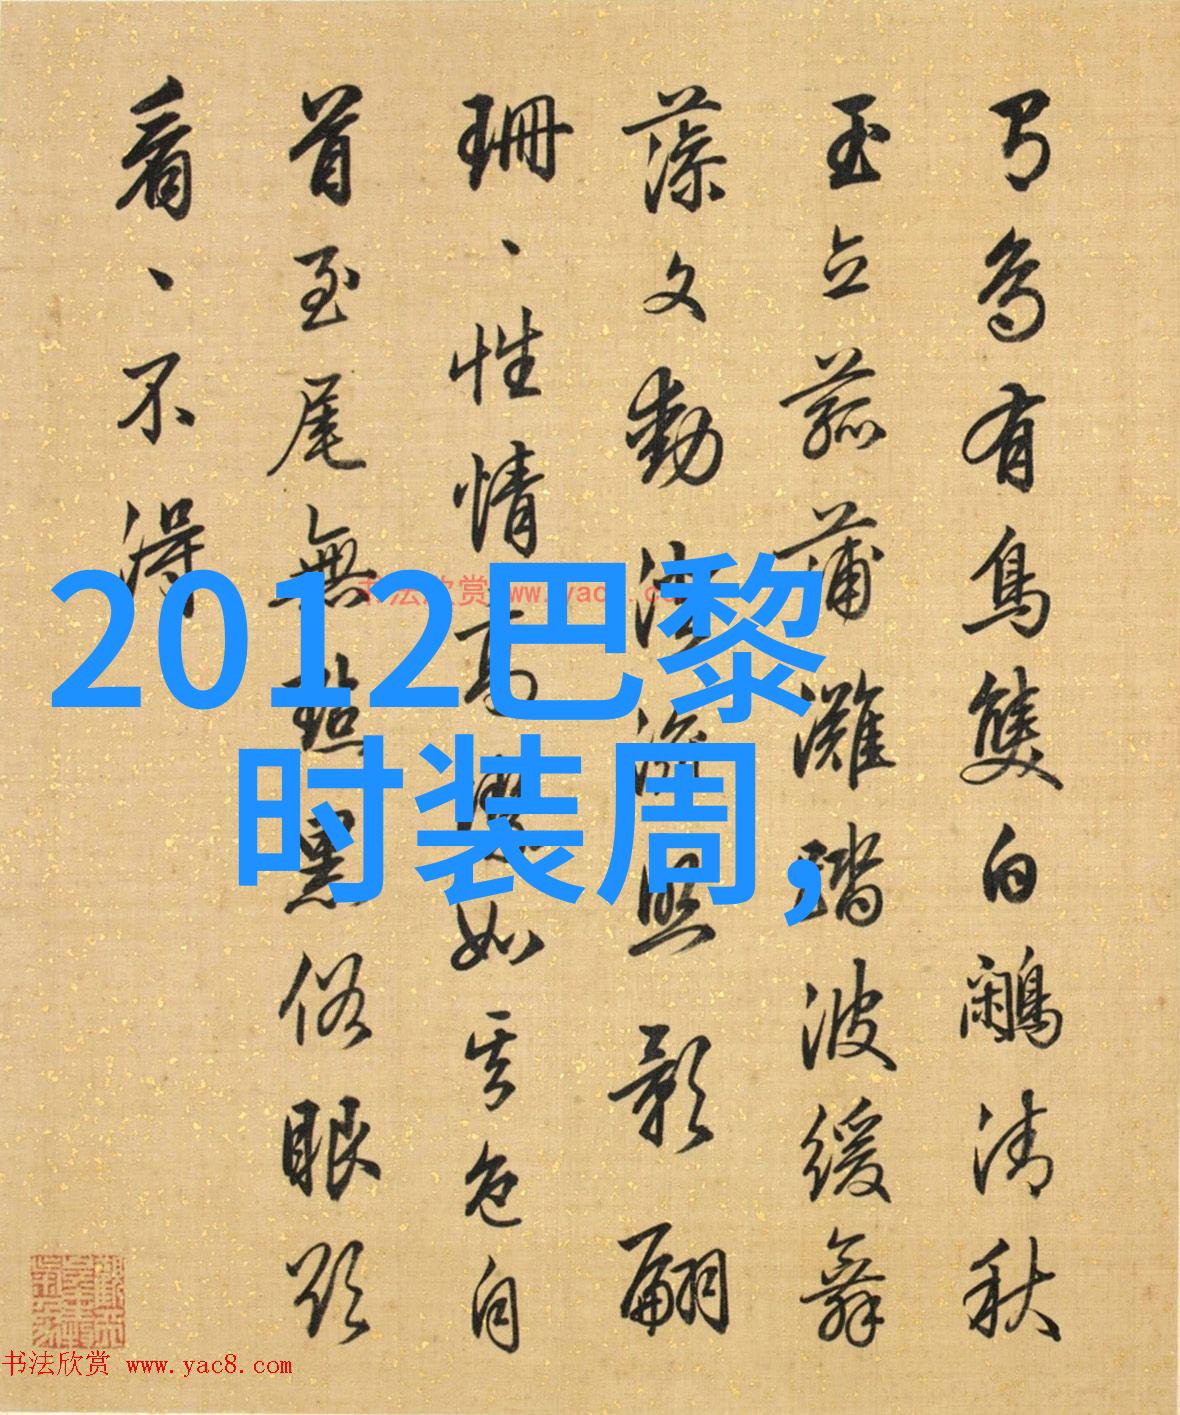 鳥有鳥雙白鷴清秋
玉立菰蒲灘踏波緩舞
藻文動照影翩
珊、性情高潔如其色自
首至尾無點黑俗眼欲
看、不得
2012巴黎
时装周,
书法欣赏 www.yac8.com
书法欣赏 www.yac8.com